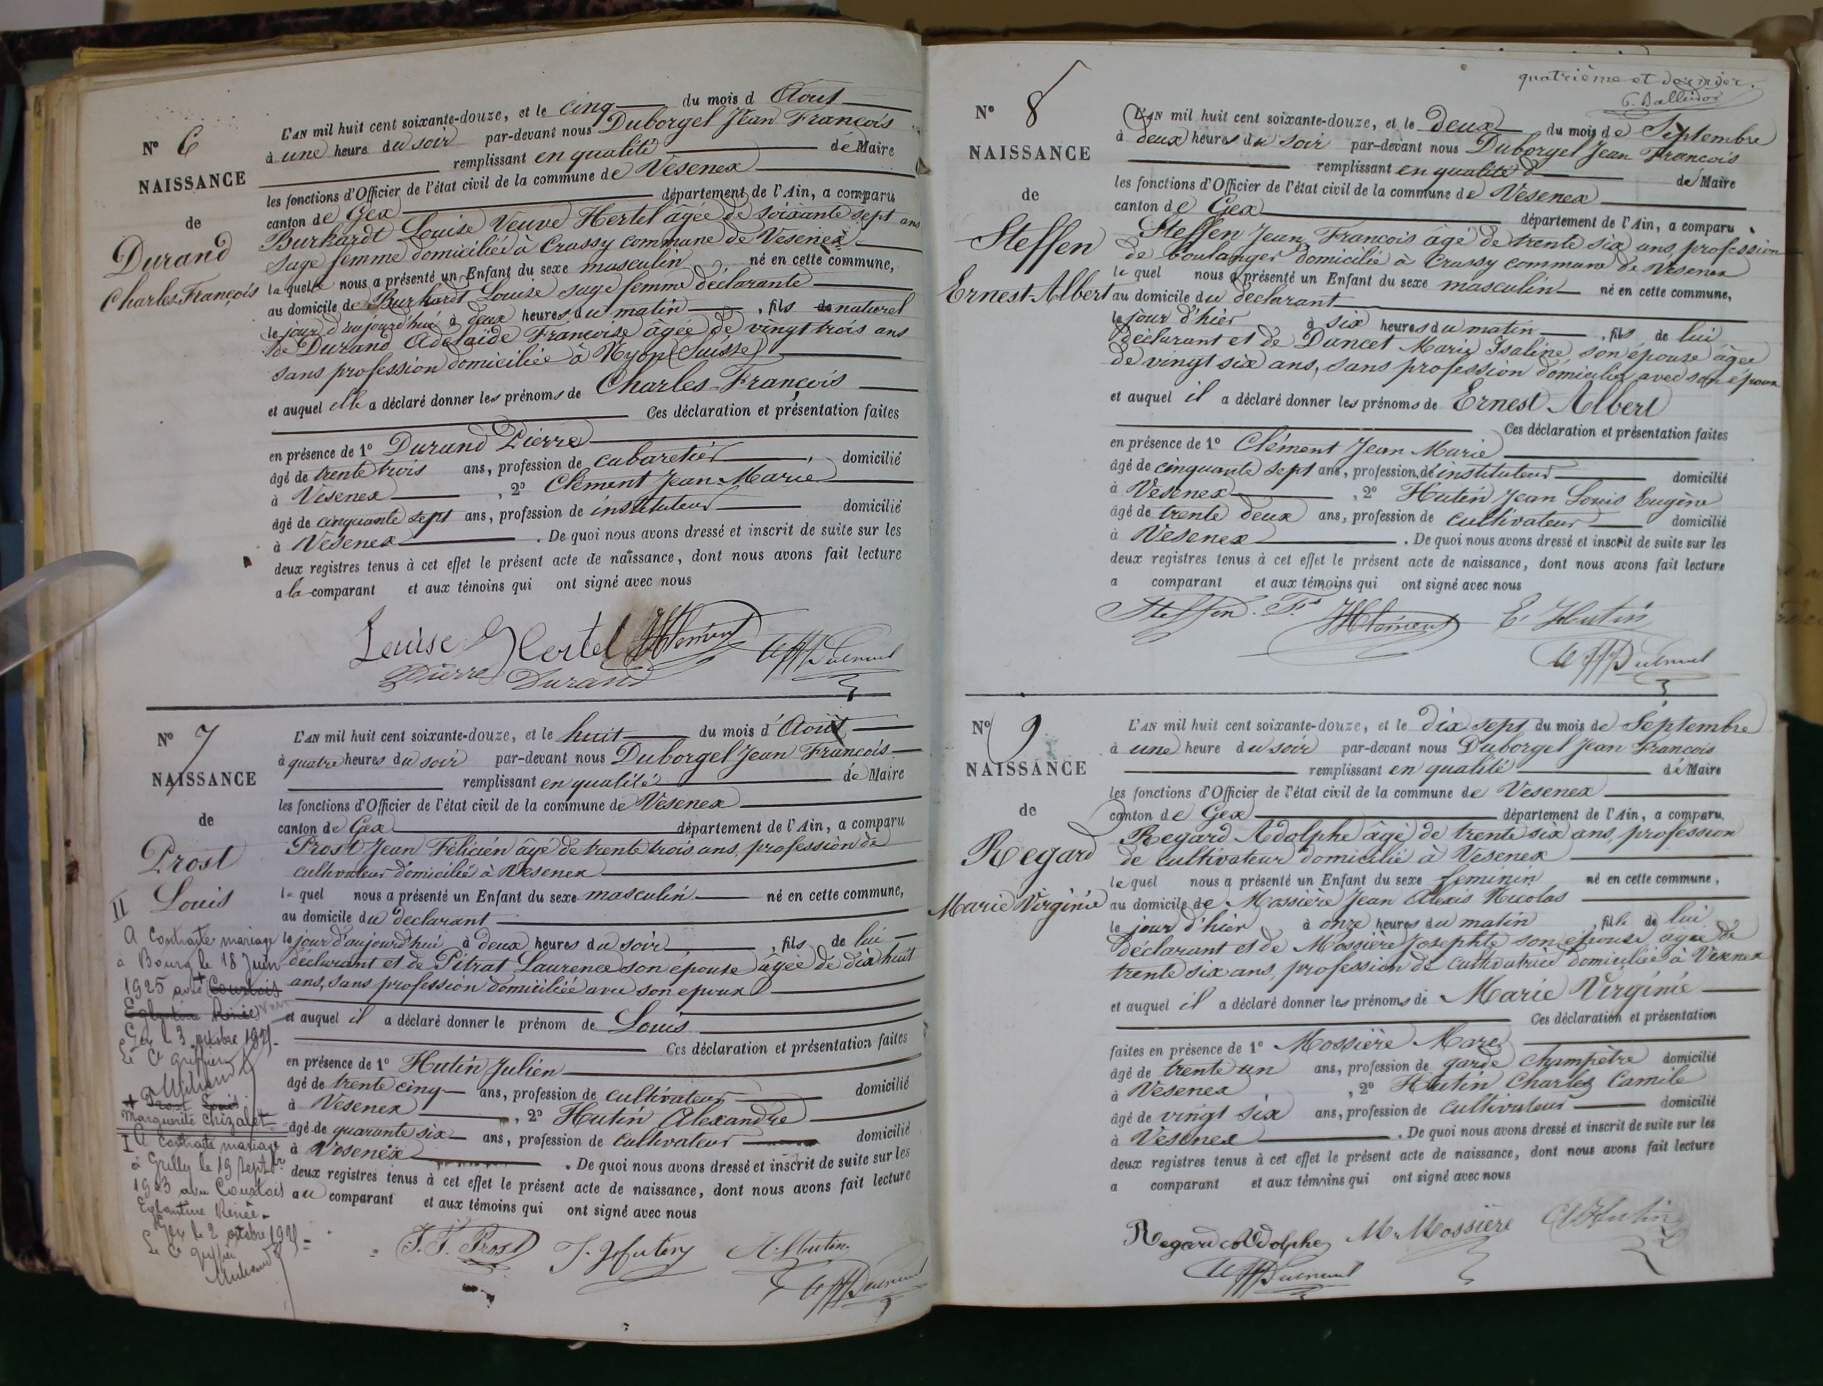 N° 6
NAISSANCE
de
Durand
Charles François
L'AN mil huit cent soixante-douze, et le cinq du mois d Août
à une heure du soir par-devant nous Duborgel Jean François
remplissant en qualité de Maire
les fonctions d'Officier de l'état civil de la commune de Vesenex
canton de Gex département de l'Ain, a comparu
Burkardt Louise Veuve Hertel âgée de soixante sept ans
sage femme domiciliée à Crassy commune de Vesenex
laquelle nous a présenté un Enfant du sexe masculin né en cette commune,
au domicile de Burkardt Louise sage femme déclarante
le jour d'aujourd'hui à deux heures du matin, fils de naturel
de Durand Adélaïde Françoise âgée de vingt trois ans
sans profession domiciliée à Nyon (Suisse)
et auquel elle a déclaré donner les prénoms de Charles François
Ces déclaration et présentation faites
en présence de 1° Durand Pierre
âgé de trente trois ans, profession de cabaretier, domicilié
à Vesenex, 2° Clément Jean Marie
âgé de cinquante sept ans, profession de instituteur domicilié
à Vesenex. De quoi nous avons dressé et inscrit de suite sur les
deux registres tenus à cet effet le présent acte de naissance, dont nous avons fait lecture
a la comparant et aux témoins qui ont signé avec nous
Louise Hertel JMClément
Pierre Durand
N° 7
NAISSANCE
de
Prost
Louis
L'AN mil huit cent soixante-douze, et le huit du mois d'Août
à quatre heures du soir par-devant nous Duborgel Jean François
remplissant en qualité de Maire
les fonctions d'Officier de l'état civil de la commune de Vesenex
canton de Gex département de l'Ain, a comparu
Prost Jean Félicien âgé de trente trois ans, profession de
cultivateur domicilié à Vesenex
le quel nous a présenté un Enfant du sexe masculin né en cette commune,
au domicile du déclarant
le jour d'aujourd'hui à deux heures du soir, fils de lui
déclarant et de Pitrat Laurence son épouse âgée de dix huit
ans, sans profession domiciliée avec son époux
et auquel il a déclaré donner le prénom de Louis
Ces déclaration et présentation faites
en présence de 1° Hutin Julien
âgé de trente cinq ans, profession de cultivateur domicilié
à Vesenex, 2° Hutin Alexandre
âgé de quarante six ans, profession de cultivateur domicilié
à Vesenex. De quoi nous avons dressé et inscrit de suite sur les
deux registres tenus à cet effet le présent acte de naissance, dont nous avons fait lecture
au comparant et aux témoins qui ont signé avec nous
J. F. Prost J. Hutin A. Hutin
II
A contracté mariage
à Bourg le 18 Juin
1925 avec + Courtois
Eglantine Renée
Gex le 3 octobre 1925
Le Cs greffier
+ Prost Louis
Marguerite Chizalet
I A contracté mariage
à Grilly le 19 septbr
1903 avec Courtois
Eglantine Renée
Gex le 2 octobre 1925
Le Cs greffier
quatrième et dernier.
N° 8
NAISSANCE
de
Steffen
Ernest Albert
L'AN mil huit cent soixante-douze, et le deux du mois de Septembre
à deux heures du soir par-devant nous Duborgel Jean François
remplissant en qualité de Maire
les fonctions d'Officier de l'état civil de la commune de Vesenex
canton de Gex département de l'Ain, a comparu
Steffen Jean François âgé de trente six ans, profession
de boulanger domicilié à Crassy commune de Vesenex
le quel nous a présenté un Enfant du sexe masculin né en cette commune,
au domicile du déclarant
le jour d'hier à six heures du matin, fils de lui
déclarant et de Dancet Marie Isaline, son épouse âgée
de vingt six ans, sans profession domiciliée avec son époux
et auquel il a déclaré donner les prénoms de Ernest Albert
Ces déclaration et présentation faites
en présence de 1° Clément Jean Marie
âgé de cinquante sept ans, profession de instituteur domicilié
à Vesenex, 2° Hutin Jean Louis Eugène
âgé de trente deux ans, profession de cultivateur domicilié
à Vesenex. De quoi nous avons dressé et inscrit de suite sur les
deux registres tenus à cet effet le présent acte de naissance, dont nous avons fait lecture
a comparant et aux témoins qui ont signé avec nous
Steffen. Fs JMClément E. Hutin
N° 9
NAISSANCE
de
Regard
Marie Virginie
L'AN mil huit cent soixante-douze, et le dix sept du mois de Septembre
à une heure du soir par-devant nous Duborgel Jean François
remplissant en qualité de Maire
les fonctions d'Officier de l'état civil de la commune de Vesenex
canton de Gex département de l'Ain, a comparu
Regard Adolphe âgé de trente six ans, profession
de cultivateur domicilié à Vesenex
le quel nous a présenté un Enfant du sexe féminin né en cette commune,
au domicile de Mossière Jean Alexis Nicolas
le jour d'hier à onze heures du matin, fille de lui
déclarant et de Mossière Josephte son épouse âgée de
trente six ans, profession de cultivatrice domiciliée à Vesenex
et auquel il a déclaré donner les prénoms de Marie Virginie
Ces déclaration et présentation
faites en présence de 1° Mossière Marc
âgé de trente un ans, profession de garde champêtre domicilié
à Vesenex, 2° Hutin Charles Camile
âgé de vingt six ans, profession de cultivateur domicilié
à Vesenex. De quoi nous avons dressé et inscrit de suite sur les
deux registres tenus à cet effet le présent acte de naissance, dont nous avons fait lecture
a comparant et aux témoins qui ont signé avec nous
Regard Adolphe M. Mossière C. Hutin